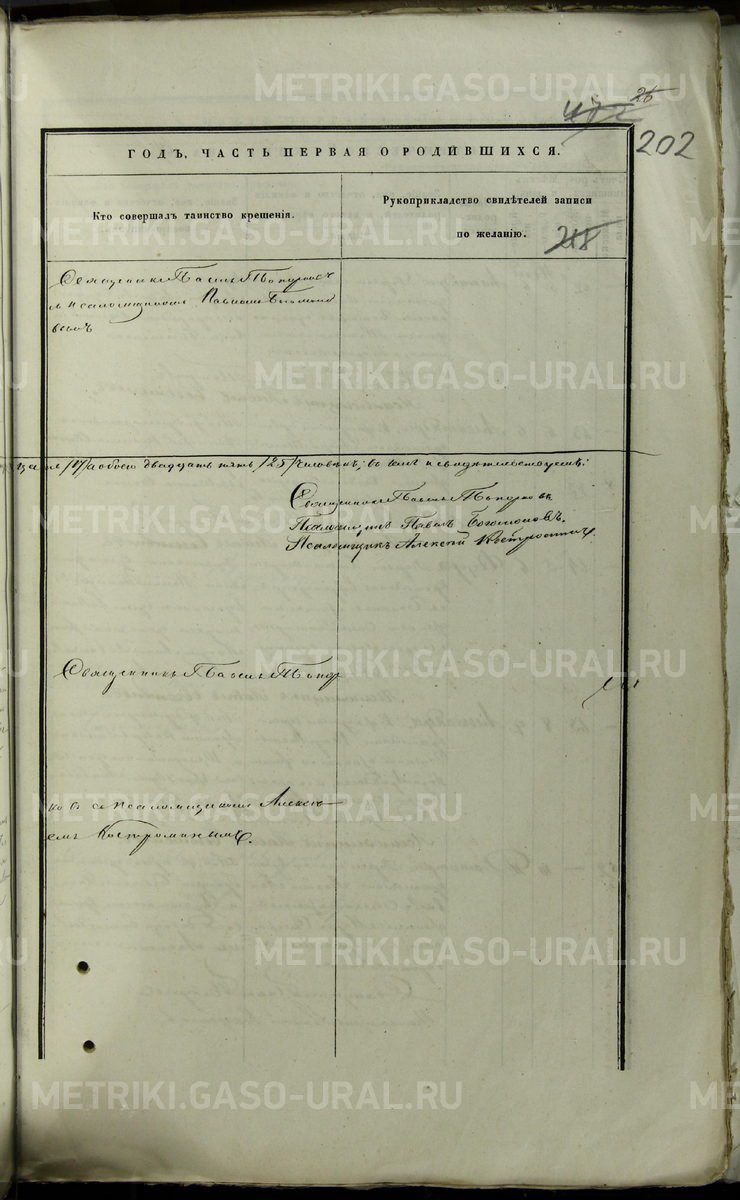 METRIKI.GASO-URAL.RU
25
202
ГОДЪ, ЧАСТЬ ПЕРВАЯ О РОДИВШИХСЯ.
Кто совершалъ таинство крещенія.
Рукоприкладство свидѣтелей записи
по желанію.
218
METRIKI.GASO-URAL.RU
Священникъ
съ псаломщикомъ Павломъ Богомоло
вымъ
METRIKI.GASO-URAL.RU
/17/ а обоего двадцать пять /25/ человѣкъ; въ семъ и свидѣтельствуемъ:
Священникъ
METRIKI.GASO-URAL.RU
Псаломщикъ Павелъ Богомоловъ.
Псаломщикъ Алексѣй Костроминъ.
METRIKI.GASO-URAL.RU
Священникъ
METRIKI.GASO-URAL.RU
ковъ съ псаломщикомъ Алексѣ
емъ Костроминымъ.
METRIKI.GASO-URAL.RU
METRIKI.GASO-URAL.RU